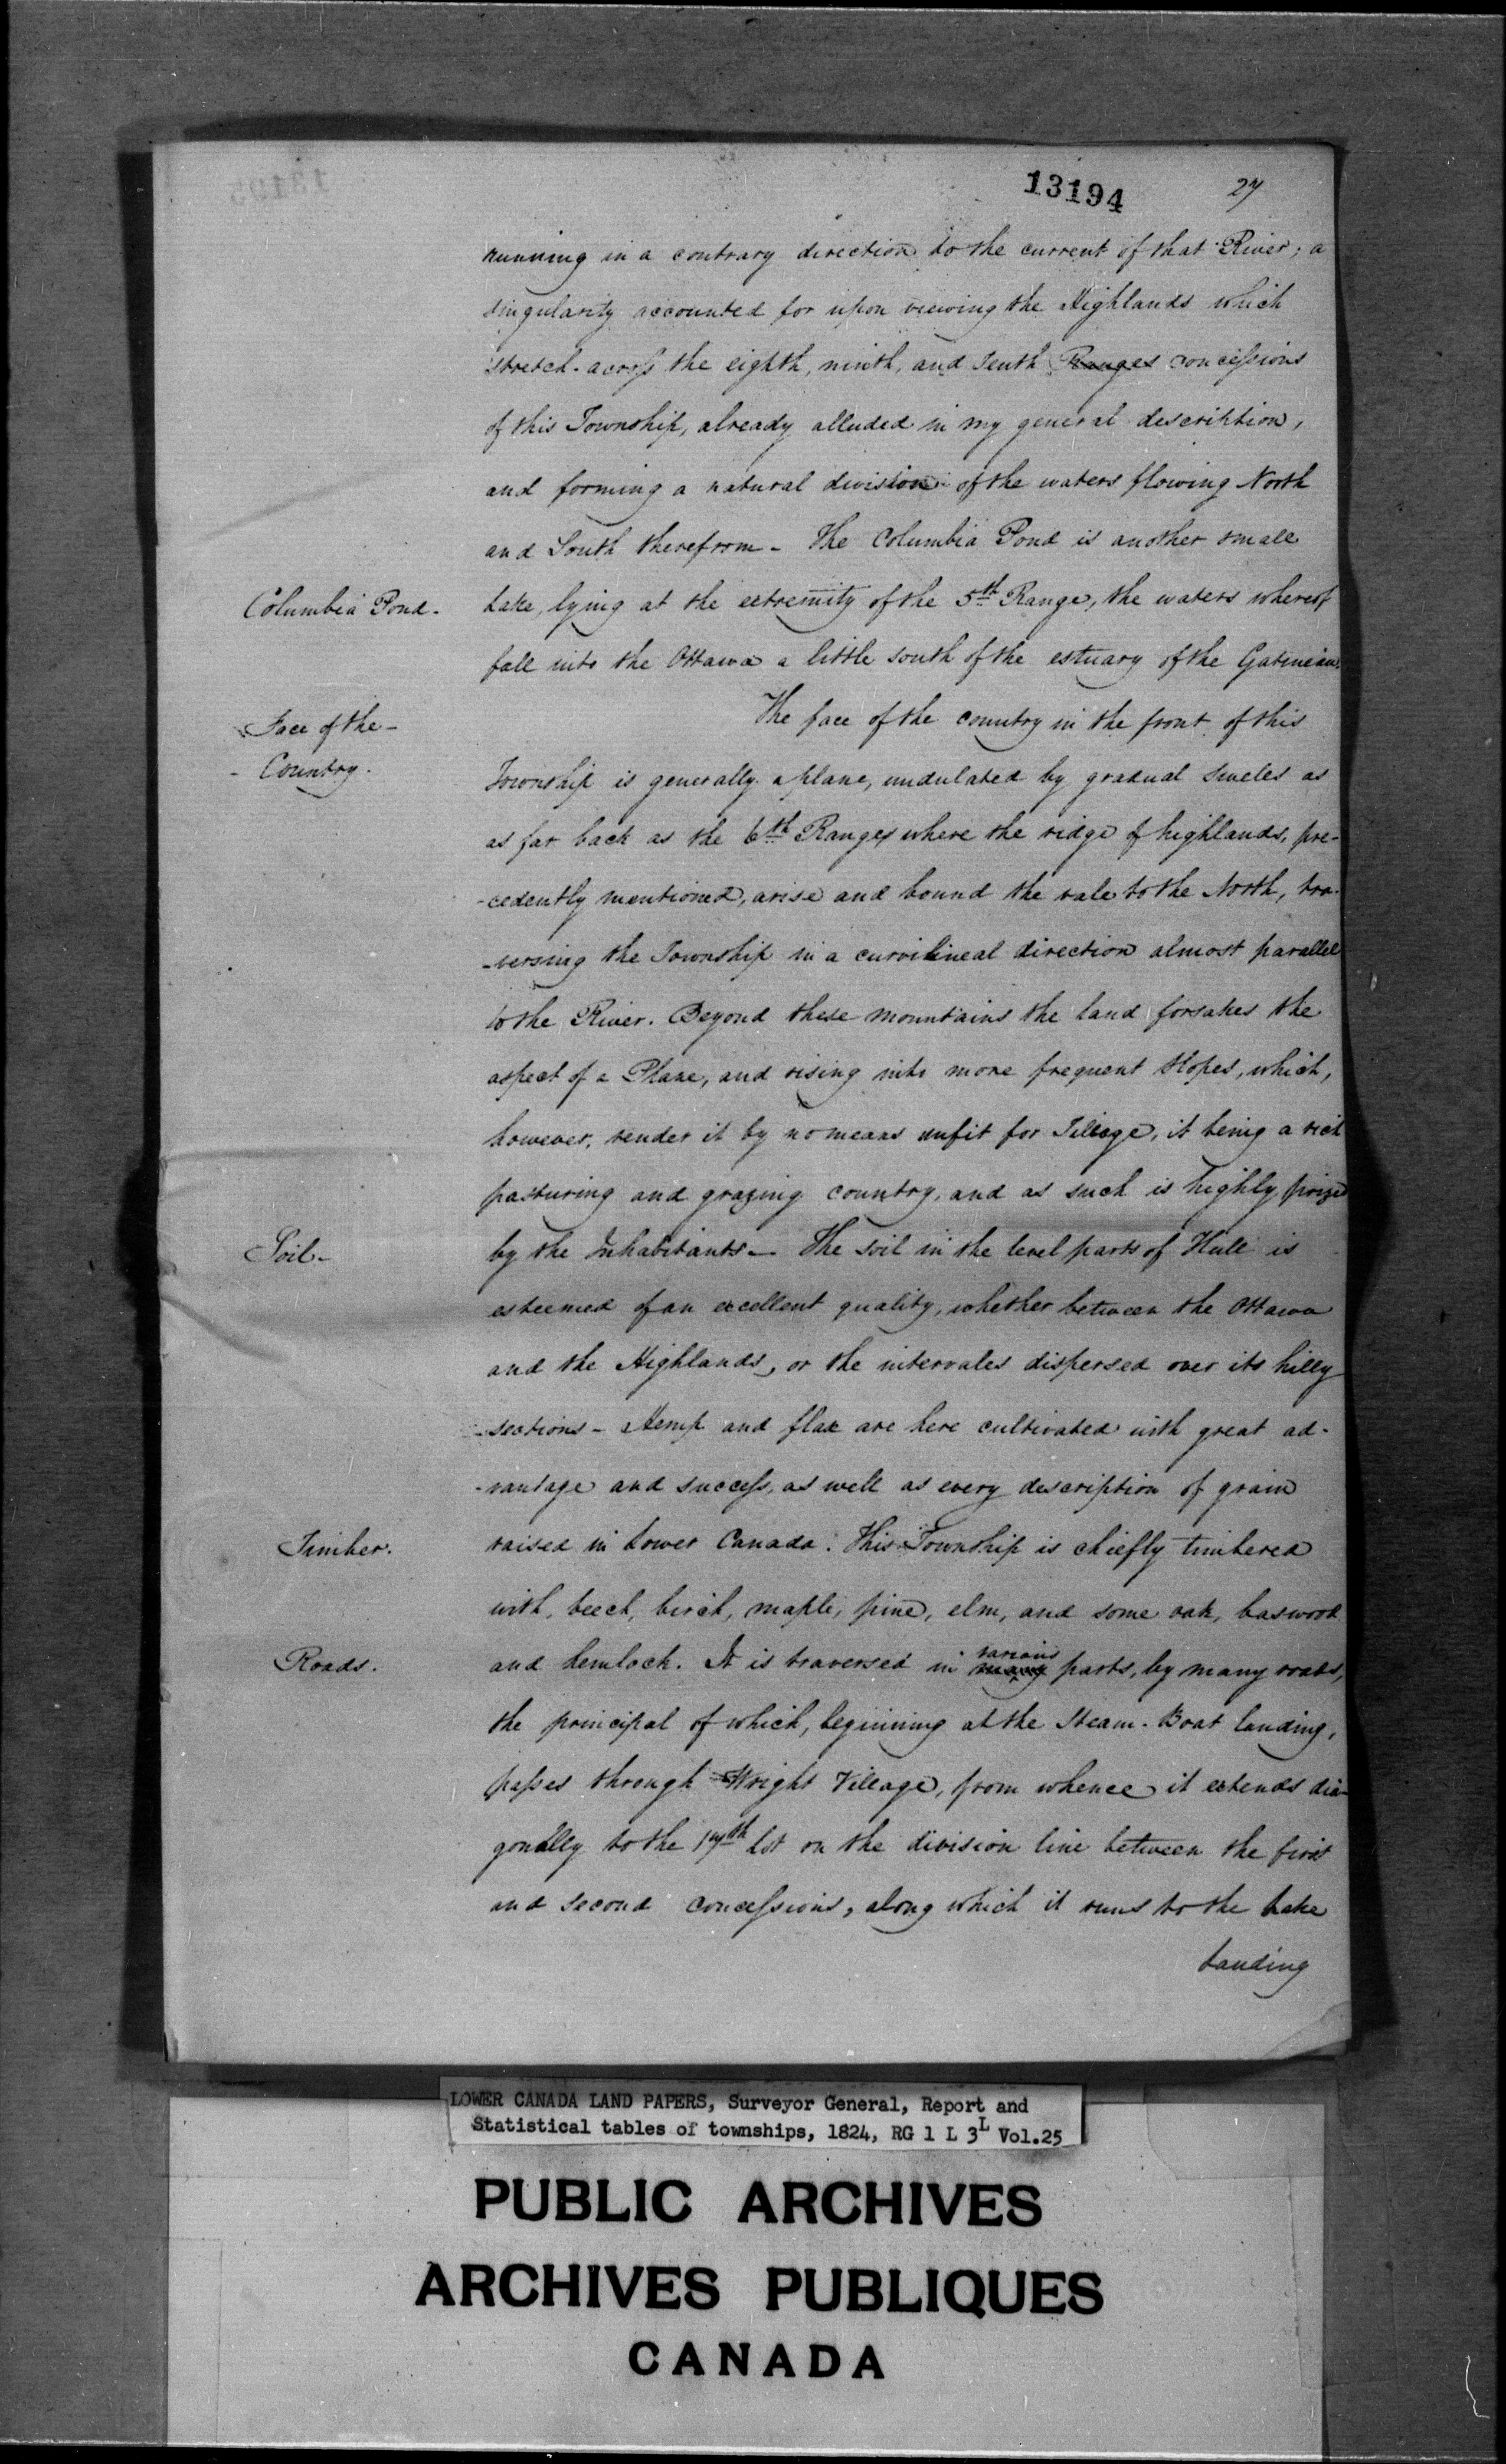 13194 27
running in a contrary direction to the current of that River; a
singularity accounted for upon viewing the Highlands which
stretch across the eighth, ninth, and Tenth Ranges concessions
of this Township, already alluded in my general description,
and forming a natural division of the waters flowing North
and South therefrom - The Columbia Pond is another small
Columbia Pond. Lake, lying at the extremity of the 5th Range, the waters whereof
fall into the Ottawa a little south of the estuary of the Gatineau.
The face of the country in the front of this
Face of the -
- Country.
Township is generally a plane, undulated by gradual sweles as
as far back as the 6th Ranges where the ridge of highlands, pre-
-cedently mentioned, arise and bound the vale to the North, tra-
-versing the Township in a curvilineal direction almost parallel
to the River. Beyond these mountains the land forsakes the
aspect of a Plane, and rising into more frequent Slopes, which,
however, render it by no means unfit for Tillage, it being a rich
pasturing and grazing country, and as such is highly prized
Soil - by the Inhabitants - The soil in the level parts of Hull is
esteemed of an excellent quality, whether between the Ottawa
and the Highlands, or the intervales dispersed over its hilly
sections - Hemp and flax are here cultivated with great ad-
-vantage and success, as well as every description of grain
Timber. raised in Lower Canada. This Township is chiefly timbered
with, beech, birch, maple, pine, elm, and some oak, baswood
Roads. and hemlock. It is traversed in many various parts, by many roads,
the principal of which, beginning at the Steam-Boat landing,
passes through Wright Village, from whence it extends dia-
gonally to the 17th lot on the division line between the first
and second concessions, along which it runs to the Lake
Landing
LOWER CANADA LAND PAPERS, Surveyor General, Report and
Statistical tables of townships, 1824, RG 1 L 3L Vol.25
PUBLIC ARCHIVES
ARCHIVES PUBLIQUES
CANADA